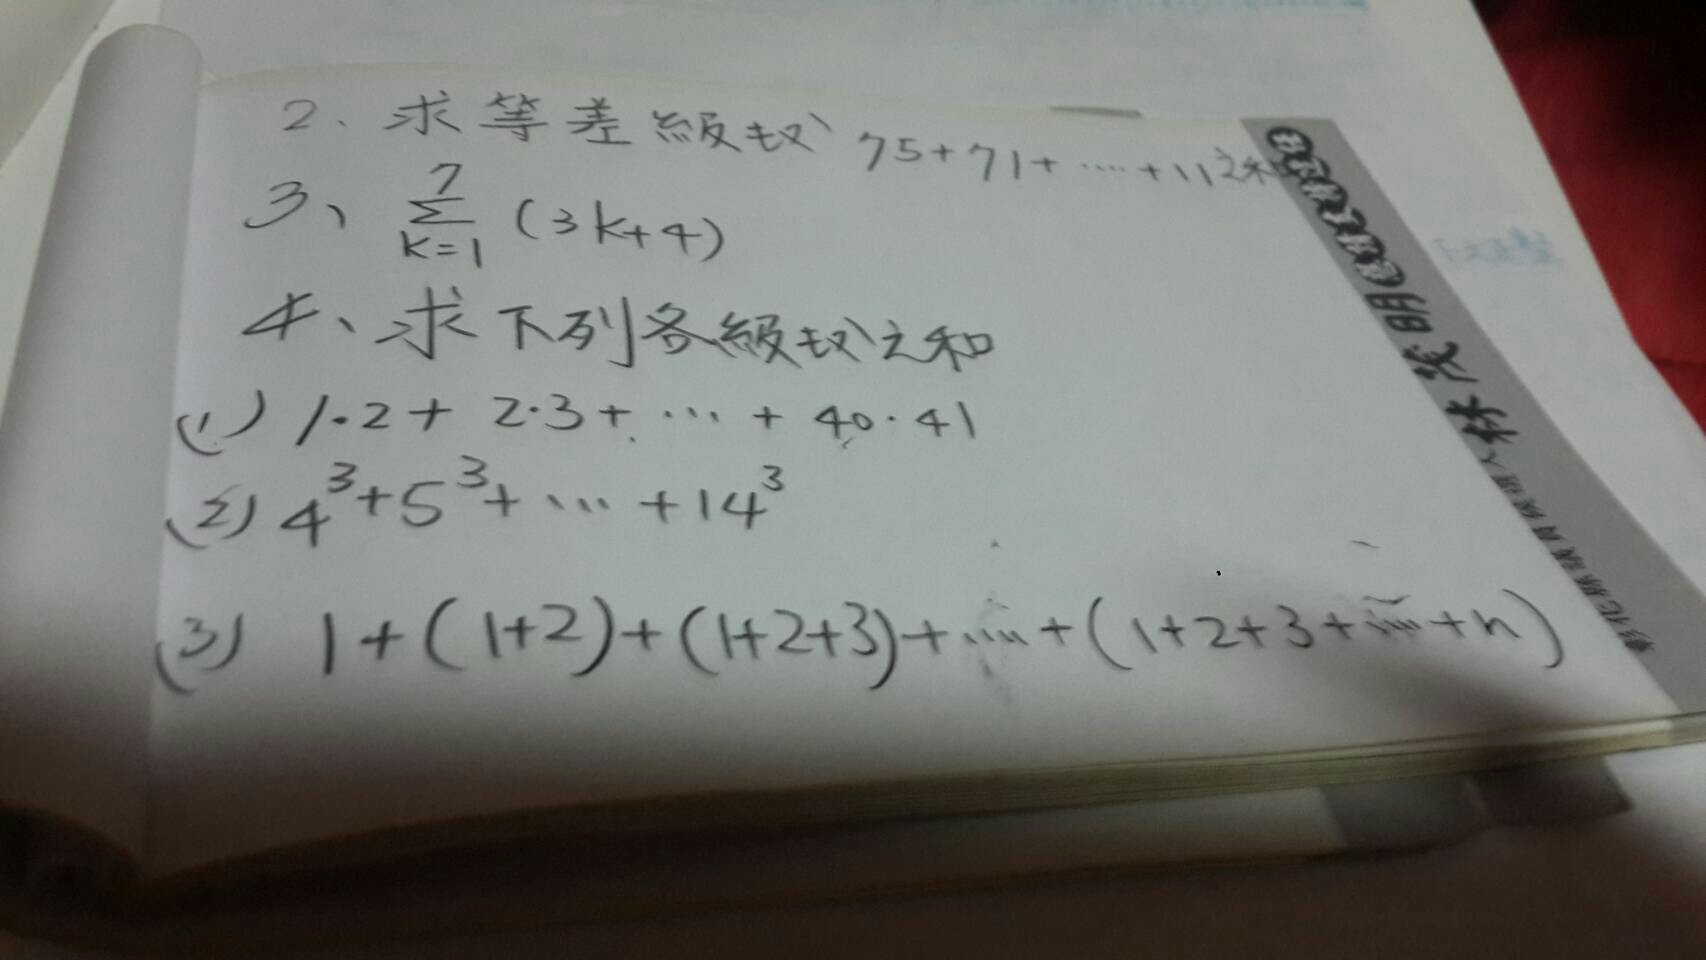 2、求等差級数 75+71+……+11之和
3、 7
Σ (3k+4)
k=1
4、求下列各級数之和
(1) 1·2+ 2·3+ … + 40·41
(2) 4³+5³+ … +14³
(3) 1+(1+2)+(1+2+3)+……+(1+2+3+……+n)
林茂明